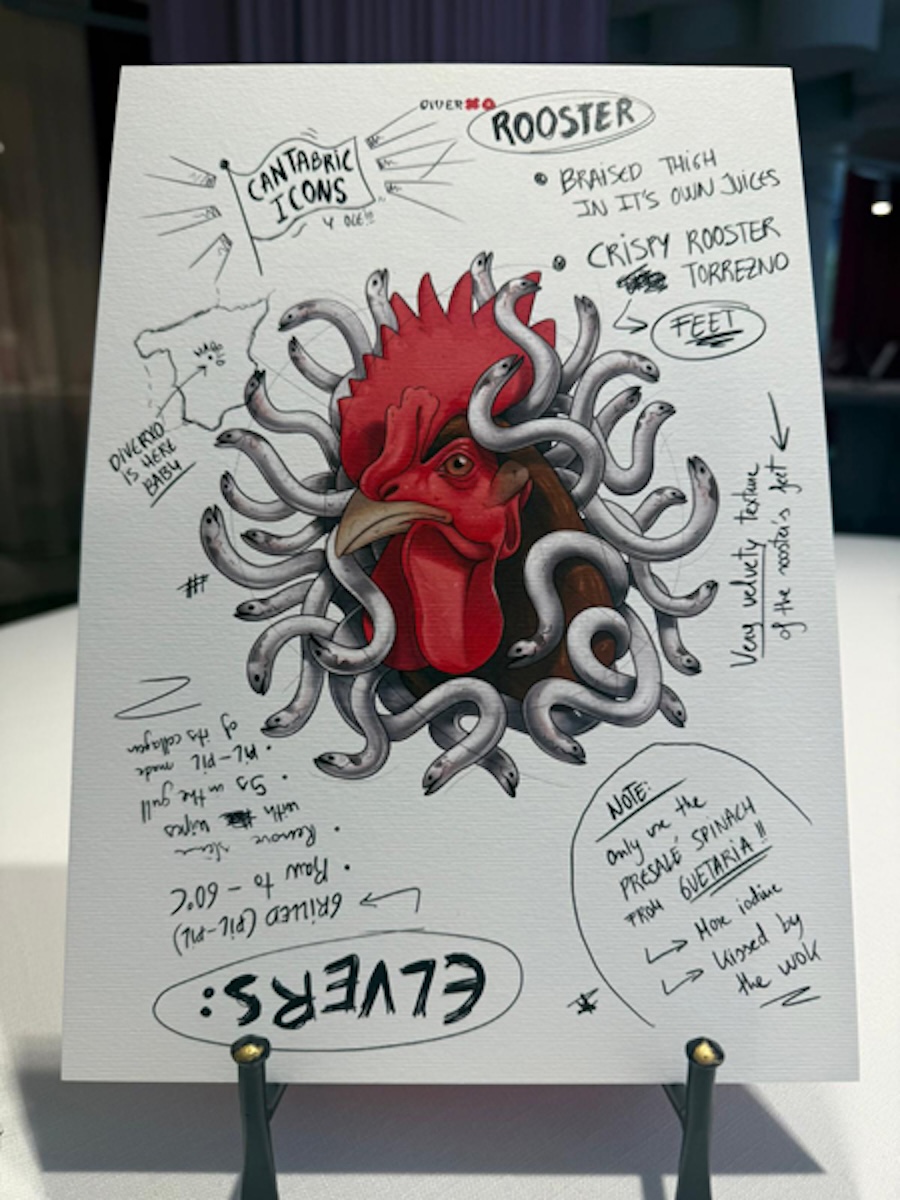 DIVERXO
ROOSTER
CANTABRIC
ICONS
Y OLE!!!
BRAISED THIGH
IN IT'S OWN JUICES
CRISPY ROOSTER
TORREZNO
FEET
DIVERXO
IS HERE
BABY
Very velvety texture
of the rooster's feet
NOTE:
only use the
PRESALÉ SPINACH
FROM GUETARIA!!
More iodine
Kissed by
the WOK
ELVERS:
GRILLED (PIL-PIL)
Raw to - 60°C
Remove slime
with wipes
5s in the grill
PIL-PIL made
of its collagen